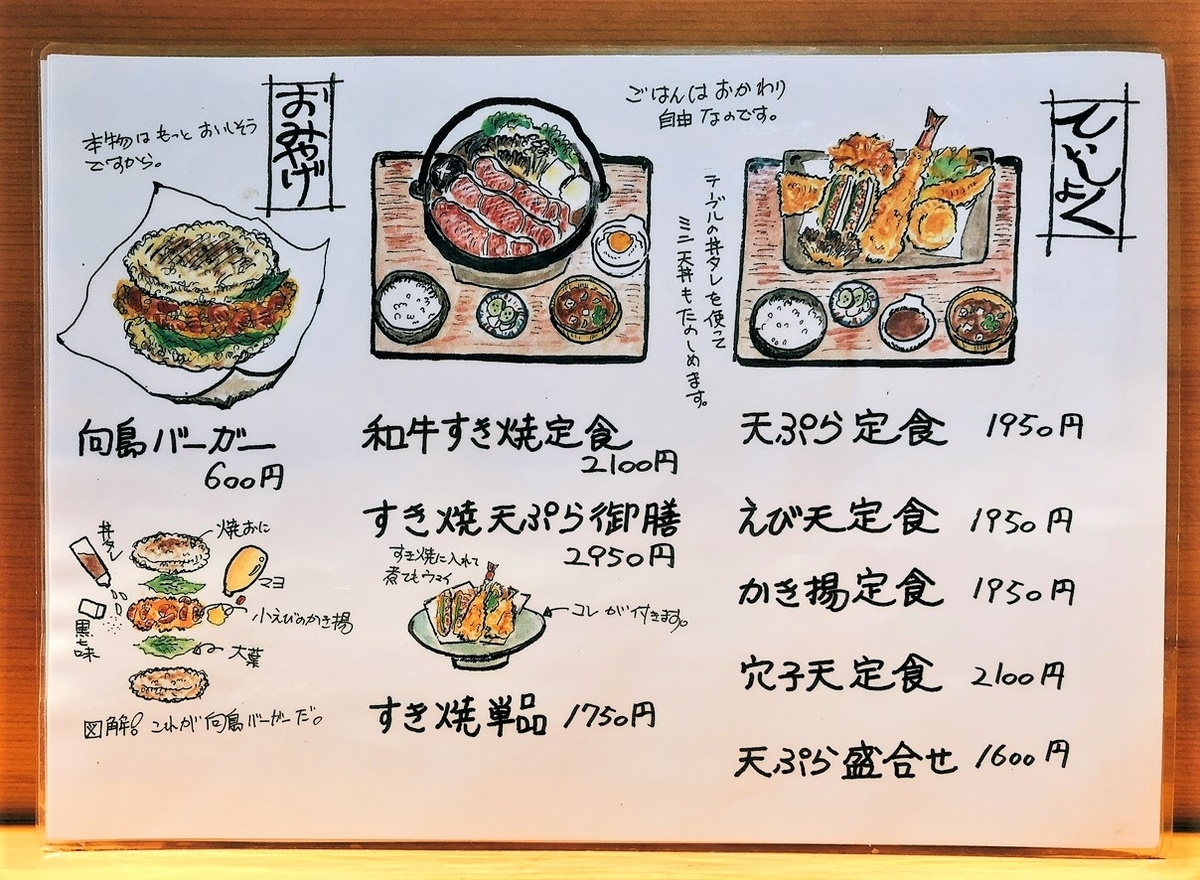 ていしょく
ごはんは おかわり
自由 なのです。
テーブルの丼タレを使って
ミニ天丼もたのしめます。
天ぷら定食 1950円
えび天定食 1950円
かき揚定食 1950円
穴子天定食 2100円
天ぷら盛合せ 1600円
和牛すき焼定食
2100円
すき焼天ぷら御膳
2950円
すき焼に入れて
煮てもウマイ
コレが付きます。
すき焼単品 1750円
おみやげ
本物は もっと おいしそう
ですから。
向島バーガー
600円
丼タレ
焼おに
マヨ
黒七味
小えびのかき揚
大葉
図解! これが向島バーガーだ。